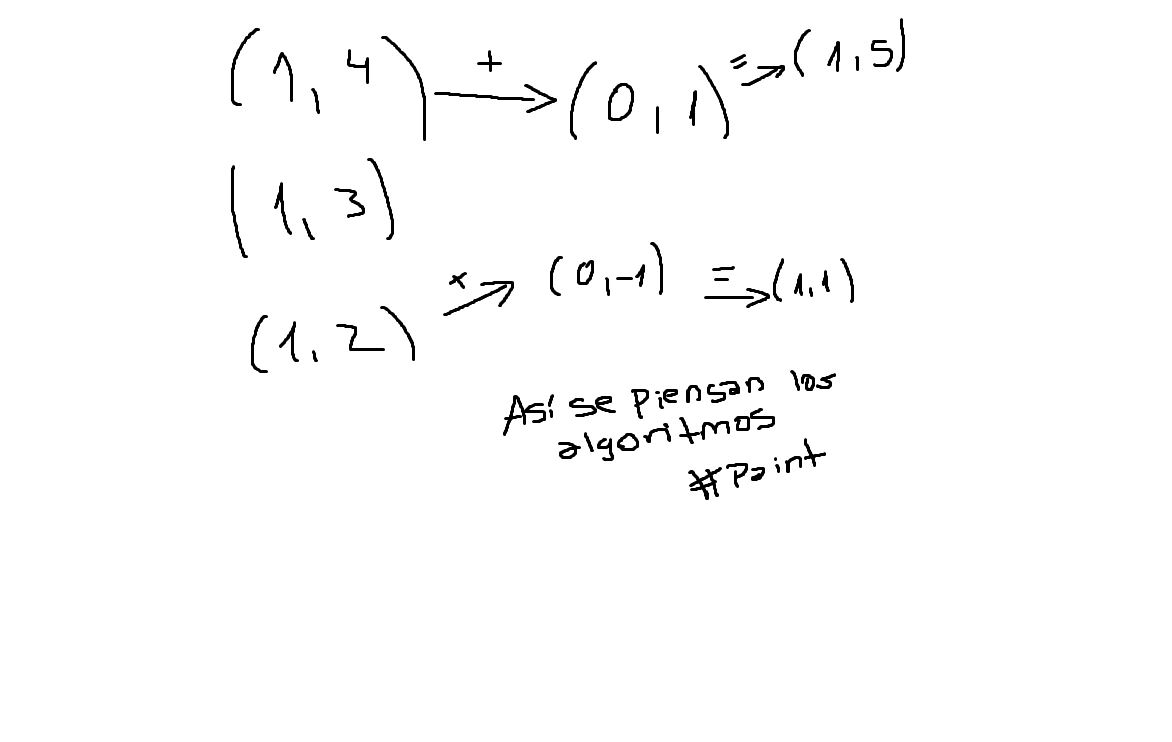 (1, 4) + (0, 1) = (1, 5)
(1, 3)
(1, 2) x (0, -1) = (1, 1)
Así se piensan los
algoritmos
#Paint